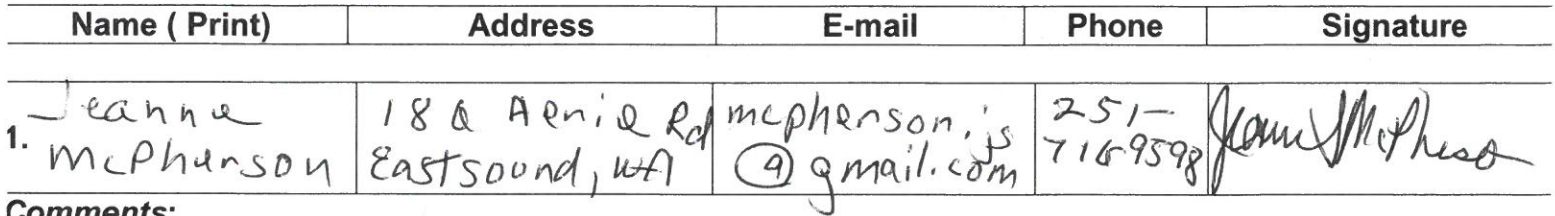 Name ( Print) Address E-mail Phone Signature
1. Jeanne McPherson
18 Aerie Rd Eastsound, WA
mcpherson.js @gmail.com
251-
Comments: